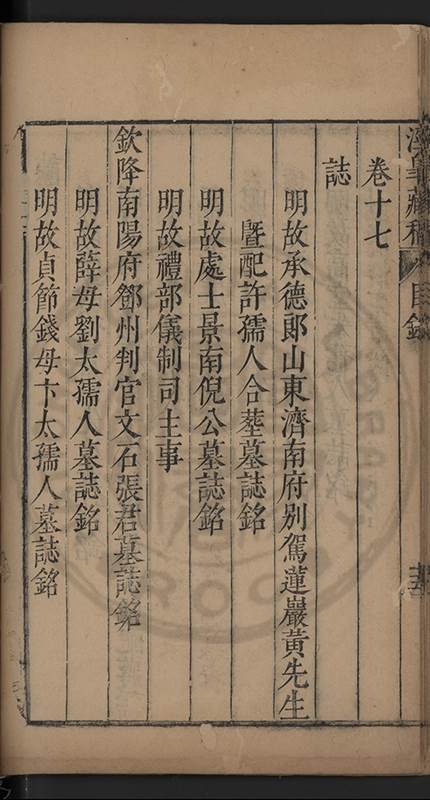 卷十七
誌
明故承德郎山東濟南府别駕蓮巖黃先生
暨配許孺人合塟墓誌銘
明故處士景南倪公墓誌銘
明故禮部儀制司主事
欽降南陽府鄧州判官文石張君墓誌銘
明故薛母劉太孺人墓誌銘
明故貞節錢母卞太孺人墓誌銘